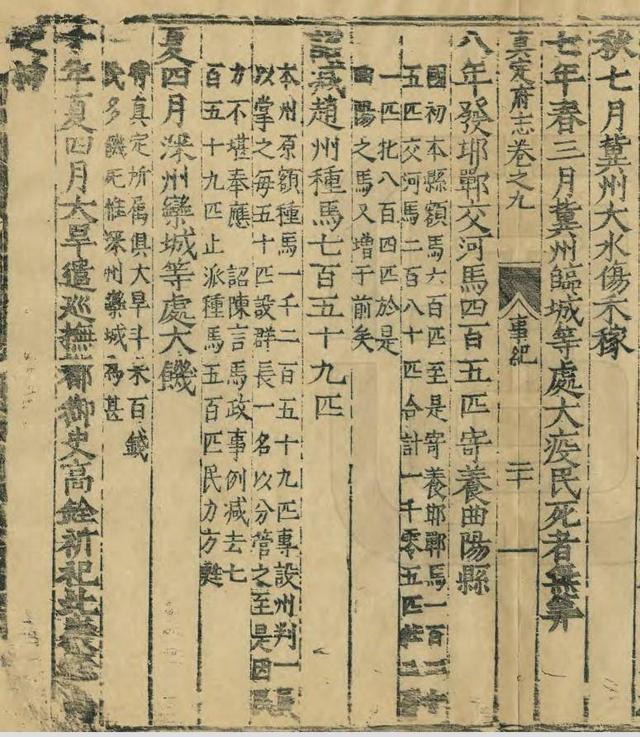 秋七月冀州大水傷禾稼
七年春三月冀州臨城等處大疫民死者無算
真定府志卷之九 事紀 二十一
八年發邯鄲交河馬四百五匹寄養曲陽縣
國初本縣額馬六百匹至是寄養邯鄲馬一百二十
五匹交河馬二百八十匹合計一千零五匹牡二百
一匹牝八百四匹於是
曲陽之馬又增于前矣
詔減趙州種馬七百五十九匹
本州原額種馬一千二百五十九匹專設州判一員
以掌之每五十匹設群長一名以分管之至是因民
力不堪奉應 詔陳言馬政事例減去七
百五十九匹止派種馬五百匹民力方甦
夏四月深州欒城等處大饑
時真定所屬俱大旱斗米百錢
民多饑死惟深州欒城為甚
十年夏四月大旱遣巡撫都御史高銓祈祀北嶽
之神